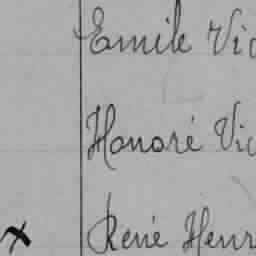 Emile Vic
Honoré Vic
x René Henr